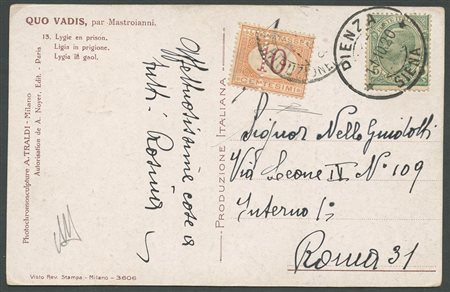 QUO VADIS, par Mastroianni.
13. Lygie en prison.
Ligia in prigione.
Lygia in gaol.
Photochromosculpture A. TRALDI - Milano
Autorisation de A. Noyer, Edit. - Paris
Affettuosissime cose a
tutti. Rosina
PRODUZIONE ITALIANA
10
CENTESIMI
PIENZA
SIENA
Signor Nello Guidotti
Via Leone IV N° 109
Interno 1°
Roma 31
Visto Rev. Stampa - Milano - 3606